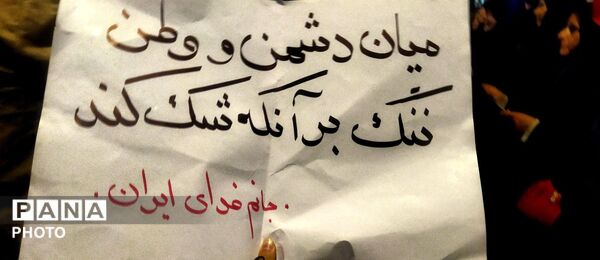 میان دشمن و وطن
ننگ بر آنکه شک کند
. جانم فدای ایران .
PANA
PHOTO